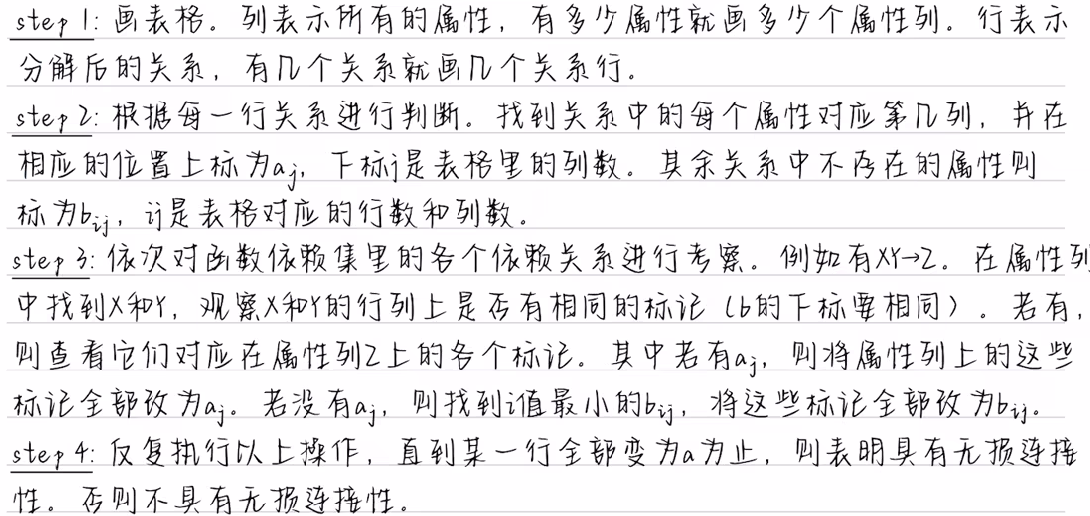 step 1: 画表格。列表示所有的属性，有多少属性就画多少个属性列。行表示
分解后的关系，有几个关系就画几个关系行。
step 2: 根据每一行关系进行判断。找到关系中的每个属性对应第几列，并在
相应的位置上标为aj，下标j是表格里的列数。其余关系中不存在的属性则
标为bij，ij是表格对应的行数和列数。
step 3: 依次对函数依赖集里的各个依赖关系进行考察。例如有XY→Z。在属性列
中找到X和Y，观察X和Y的行列上是否有相同的标记（b的下标要相同）。若有，
则查看它们对应在属性列Z上的各个标记。其中若有aj，则将属性列上的这些
标记全部改为aj。若没有aj，则找到i值最小的bij，将这些标记全部改为bij。
step 4: 反复执行以上操作，直到某一行全部变为a为止，则表明具有无损连接
性。否则不具有无损连接性。